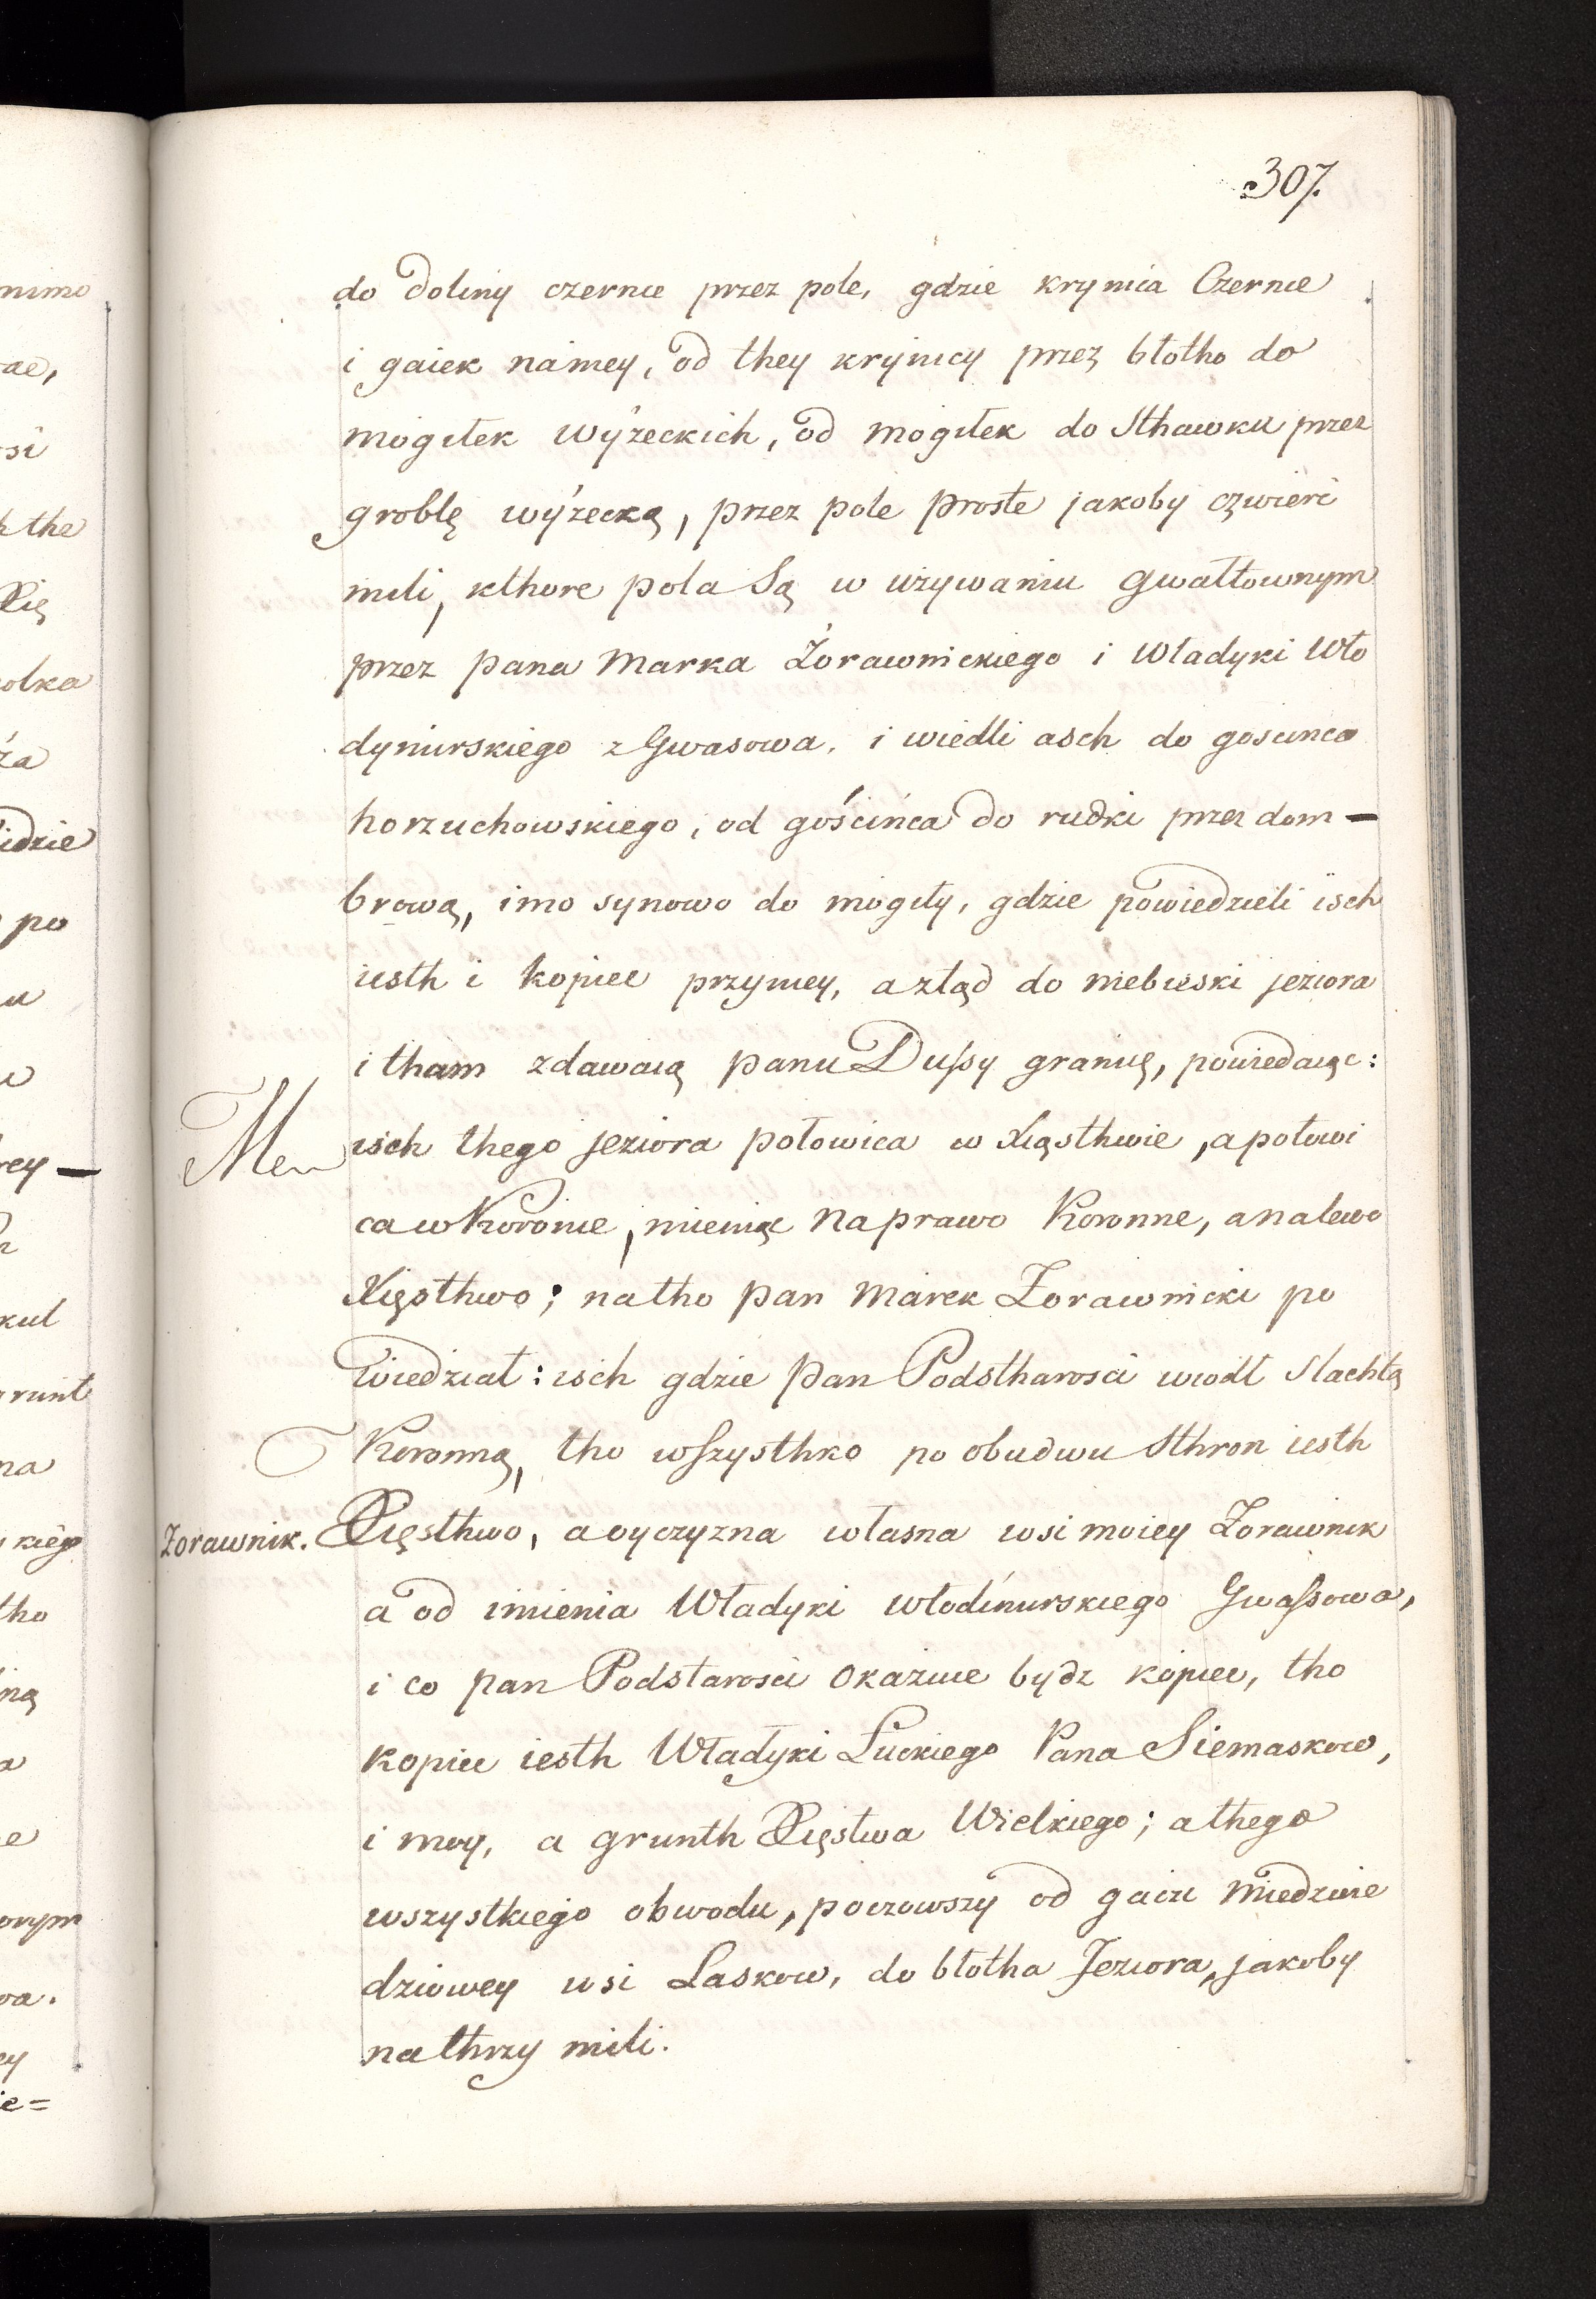 307.
do doliny czernie przez pole, gdzie krynica Czernie
i gaiek námey, od they krynicy przez błotho do
mogiłek wyżeckich, od mogiłek do Sthawku przez
groblę wyżecką, przez pole proste jakoby czwierć
mili, kthore pola Są w używaniu gwałtownym
przez pana Marka Żorawnickiego i Władyki Wło
dymirskiego z Gwasowa, i wiedli asch do goscinca
horzuchowskiego, od gościńca do rudki przez dom-
brową, imo synowo do mogiły, gdzie powiedzieli isch
iesth i kopiec przyniey, a ztąd do niebieski jeziora
i tham zdawaią panu Dussy granicę, powiedaiąc:
Men isch thego jeziora połowica w Xięsthwie, a połowi
ca w Koronie, mieniąc na prawo Koronne, a na lewo
Xięsthwo; na tho pan Marek Żorawnicki po
wiedział: isch gdzie pan Podstharosci wiodł Slachtą
Koronną, tho wszysthko po obudwu Sthron iesth
Żorawnik. Xięsthwo, a oyczyzna własna wsi moiey Żorawnik
a od imienia Władyki włodimirskiego Gwassowa,
i co pan Podstarosci okazuie bydz kopiec, tho
kopiec iesth Władyki Łuckiego Pana Siemaskow,
i moy, a grunth Xięstwa Wielkiego; a thego
wszystkiego obwodu, poczowszy od gaiu Miedzwie
dziowey wsi Laskow, do błotha Jeziora, jakoby
na thrzy mili.